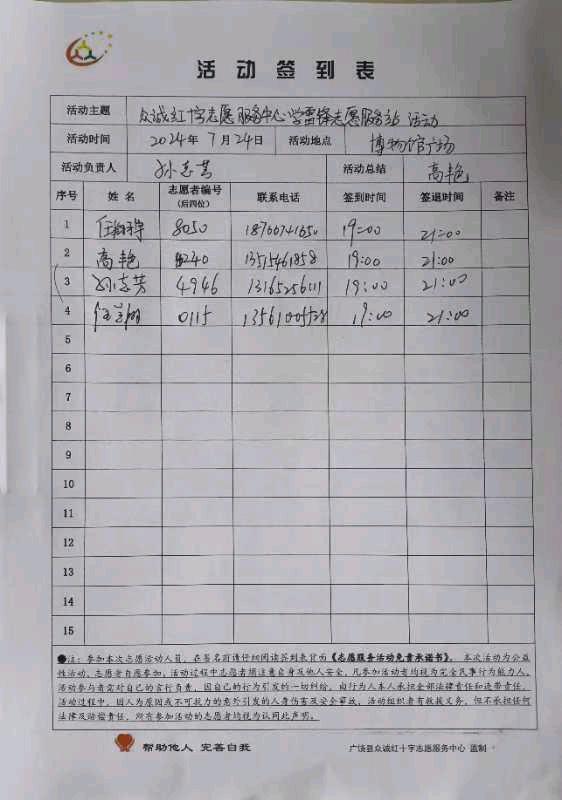 活动签到表
活动主题 众诚红十字志愿服务中心学雷锋志愿服务站 活动
活动时间 2024年7月24日 活动地点 博物馆广场
活动负责人 孙志芳 活动总结 高艳
序号 姓名 志愿者编号 联系电话 签到时间 签退时间 备注
(后四位)
1 8050 18700741650 19:00 21:00
2 高艳 5240 13515461858 19:00 21:00
3 孙志芳 4946 13165256111 19:00 21:00
4 0115 19:00 21:00
5
6
7
8
9
10
11
12
13
14
15
●注：参加本次志愿活动人员，在签名前请仔细阅读签到表背面《志愿服务活动免责承诺书》。本次活动为公益
性活动，志愿者自愿参加，活动过程中志愿者须注意自身及他人安全，凡参加活动者均视为完全民事行为能力人，
活动参与者需对自己的言行负责，因自己的行为引发的一切纠纷，由行为人本人承担全部法律责任和连带责任。
活动过程中，因人为原因或不可抗力的意外引发的人身伤害及安全事故，活动组织者有救援义务，但不承担任何
法律及赔偿责任，所有参加活动的志愿者均视为认同此声明。
帮助他人 完善自我 广饶县众诚红十字志愿服务中心 监制